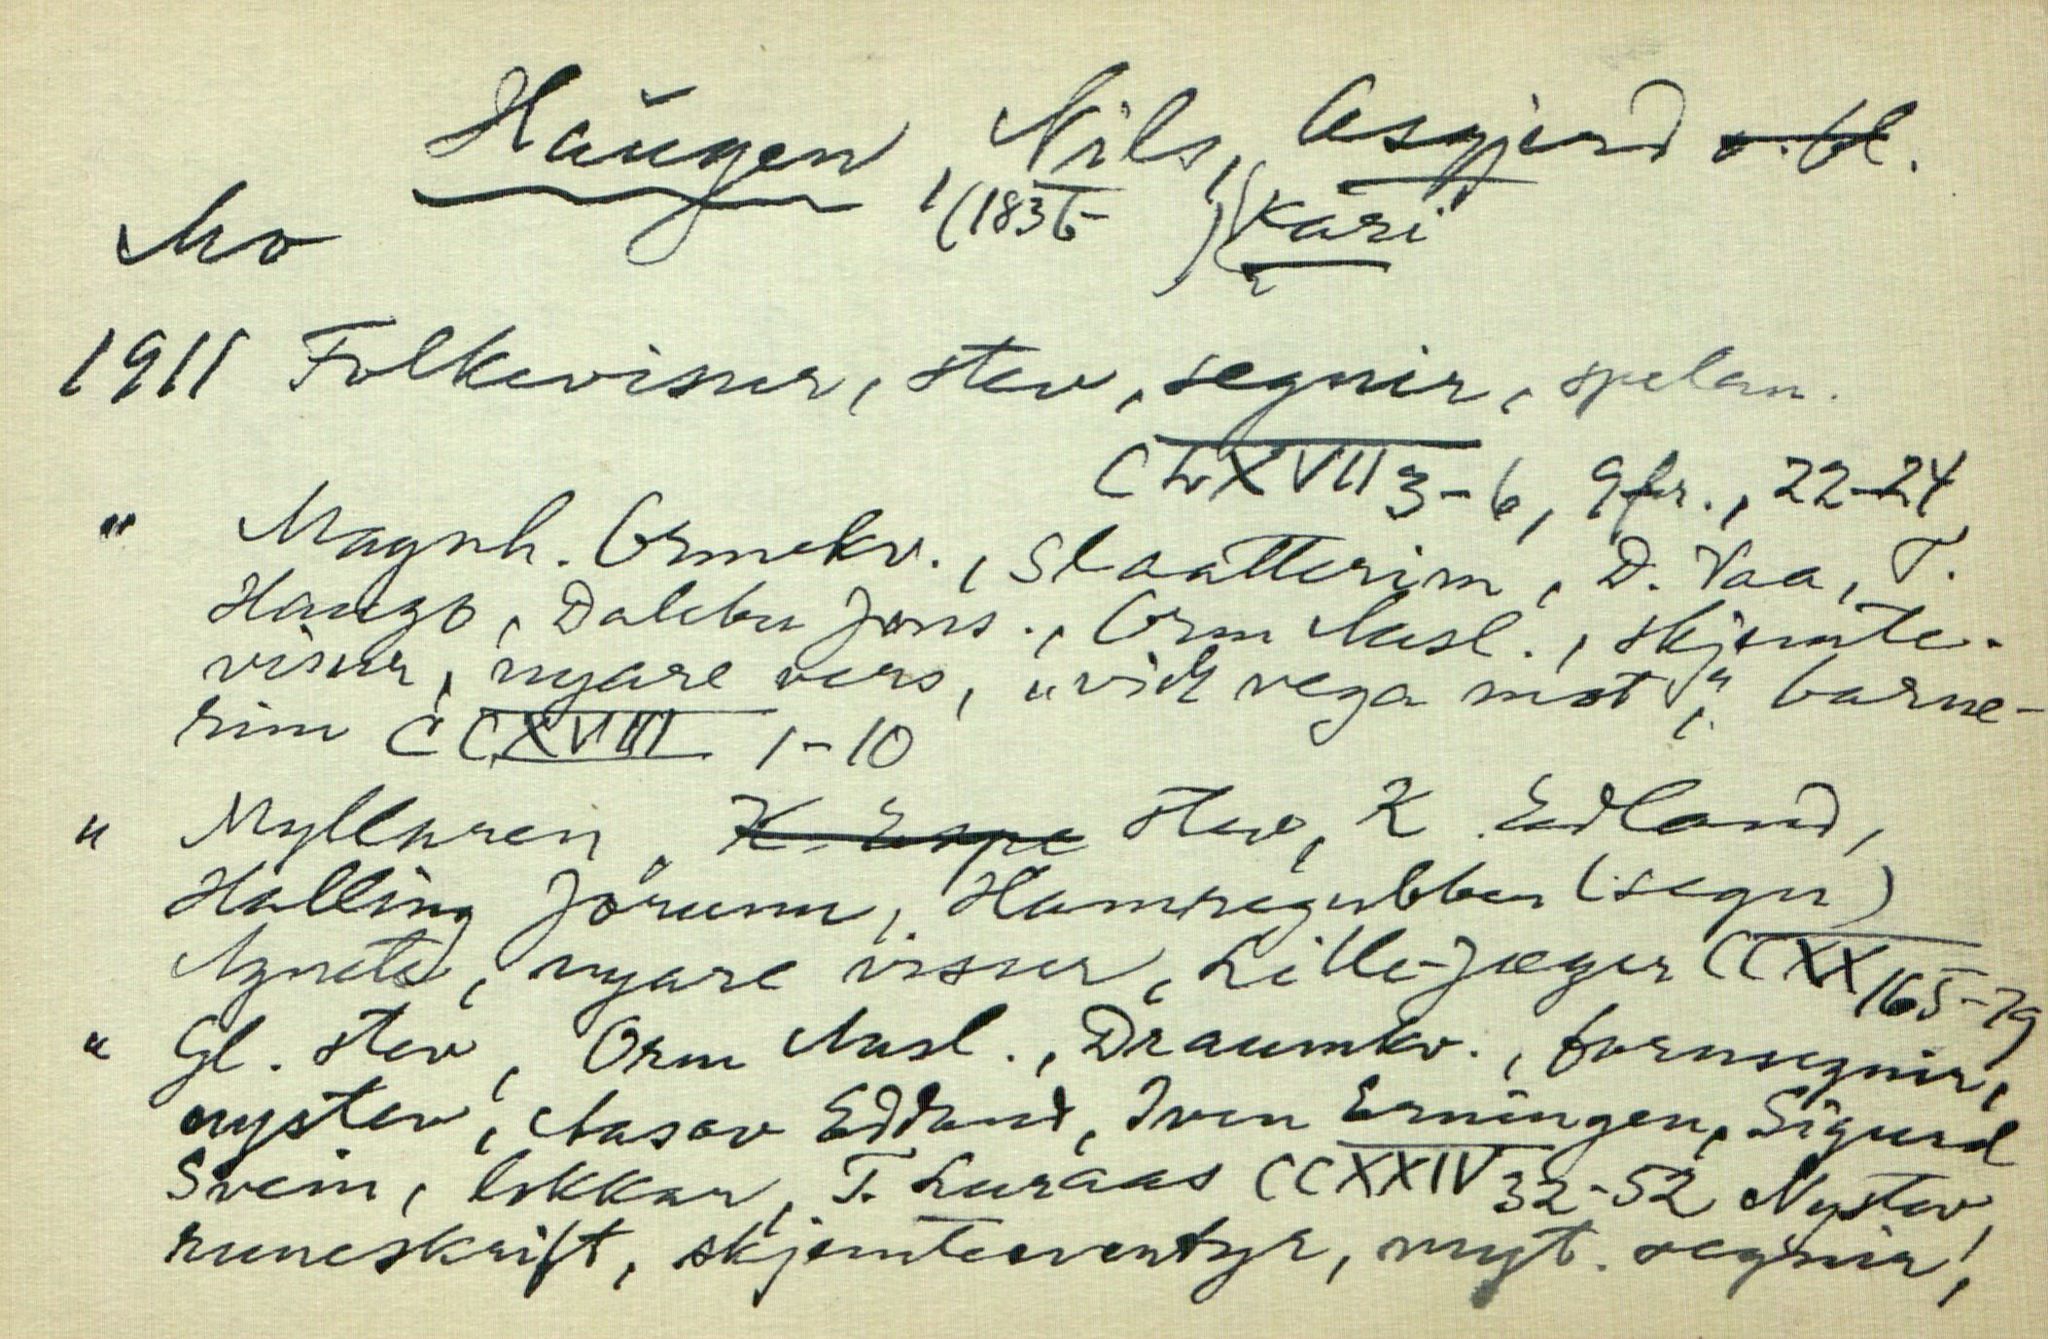 Haugen, Nils, Asgjerd o. fl.
Mo (1836- ) Kari
1911 Folkevisur, stev, segnir, spelem.
CLXVII 3-6, 9 fr., 22-24,
" Magnh. Ormekv., Slaatterim, D. Vaa, T.
Haugo, Dalebu Jons., Orm Aasl., skjemte-
visur, nyare vers, "vich vega mot", barne-
rim CCXVIII 1-10
" Myllaren, K. Espe stev, K. Edland,
Halling Jörunn, Hamregubben (segn)
Agnete, nyare visur, Lille-Jæger CCXX 165-79
" Gl. stev, Orm Aasl., Draumkv., fornsegnir,
nystev, Aasov Edland, Iven Erningen, Sigurd
Svein, lokkar, T. Luraas CCXXIV 32-52 Nystev,
runeskrift, skjemteeventyr, myt. segnir,